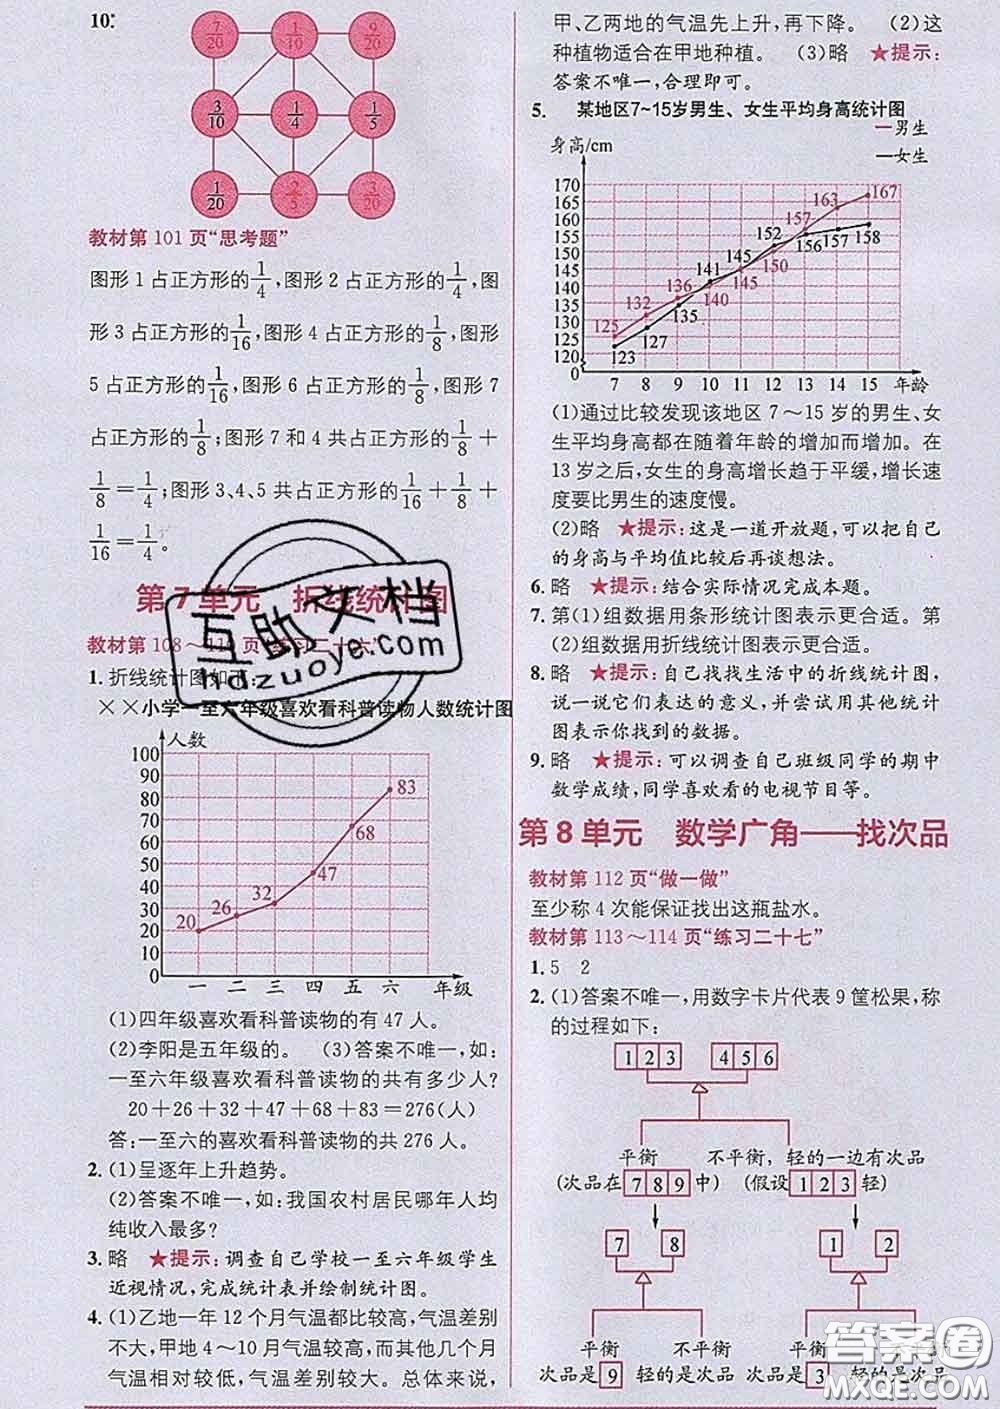 10.
7/20 1/10 9/20
3/10 1/4 1/5
1/20 2/5 3/20
教材第 101 页“思考题”
图形 1 占正方形的1/4,图形 2 占正方形的1/4,图
形 3 占正方形的1/16,图形 4 占正方形的1/8,图形
5 占正方形的1/16,图形 6 占正方形的1/8,图形 7
占正方形的1/8;图形 7 和 4 共占正方形的1/8＋
1/8＝1/4;图形 3、4、5 共占正方形的1/16＋1/8＋
1/16＝1/4。
第 7 单元 折线统计图
教材第 108～110 页“练习二十六”
1. 折线统计图如下:
××小学一至六年级喜欢看科普读物人数统计图
人数
100
90
80
70
60
50
40
30
20
10
0
20 26 32 47 68 83
一 二 三 四 五 六 年级
(1)四年级喜欢看科普读物的有 47 人。
(2)李阳是五年级的。 (3)答案不唯一,如:
一至六年级喜欢看科普读物的共有多少人?
20＋26＋32＋47＋68＋83＝276(人)
答:一至六的喜欢看科普读物的共 276 人。
2. (1)呈逐年上升趋势。
(2)答案不唯一,如:我国农村居民哪年人均
纯收入最多?
3. 略 ★提示:调查自己学校一至六年级学生
近视情况,完成统计表并绘制统计图。
4. (1)乙地一年 12 个月气温都比较高,气温差别
不大,甲地 4～10 月气温较高,而其他几个月
气温相对较低,气温差别较大。总体来说,
甲、乙两地的气温先上升,再下降。 (2)这
种植物适合在甲地种植。 (3)略 ★提示:
答案不唯一,合理即可。
5. 某地区7~15岁男生、女生平均身高统计图
男生
女生
身高/cm
170
165
160
155
150
145
140
135
130
125
120
0
125 132 136 140 145 150 157 163 167
123 127 135 141 145 152 156 157 158
7 8 9 10 11 12 13 14 15 年龄
(1)通过比较发现该地区 7～15 岁的男生、女
生平均身高都在随着年龄的增加而增加。在
13 岁之后,女生的身高增长趋于平缓,增长速
度要比男生的速度慢。
(2)略 ★提示:这是一道开放题,可以把自己
的身高与平均值比较后再谈想法。
6. 略 ★提示:结合实际情况完成本题。
7. 第(1)组数据用条形统计图表示更合适。第
(2)组数据用折线统计图表示更合适。
8. 略 ★提示:自己找找生活中的折线统计图,
说一说它们表达的意义,并尝试用其他统计
图表示你找到的数据。
9. 略 ★提示:可以调查自己班级同学的期中
数学成绩,同学喜欢看的电视节目等。
第 8 单元 数学广角——找次品
教材第 112 页“做一做”
至少称 4 次能保证找出这瓶盐水。
教材第 113～114 页“练习二十七”
1. 5 2
2. (1)答案不唯一,用数字卡片代表 9 筐松果,称
的过程如下:
1 2 3 4 5 6
平衡 不平衡,轻的一边有次品
(次品在 7 8 9 中) (假设 1 2 3 轻)
7 8 1 2
平衡 不平衡 平衡 不平衡
次品是 9 轻的是次品 次品是 3 轻的是次品
互助文档
hdzuoye.com
答案圈
MXQE.COM